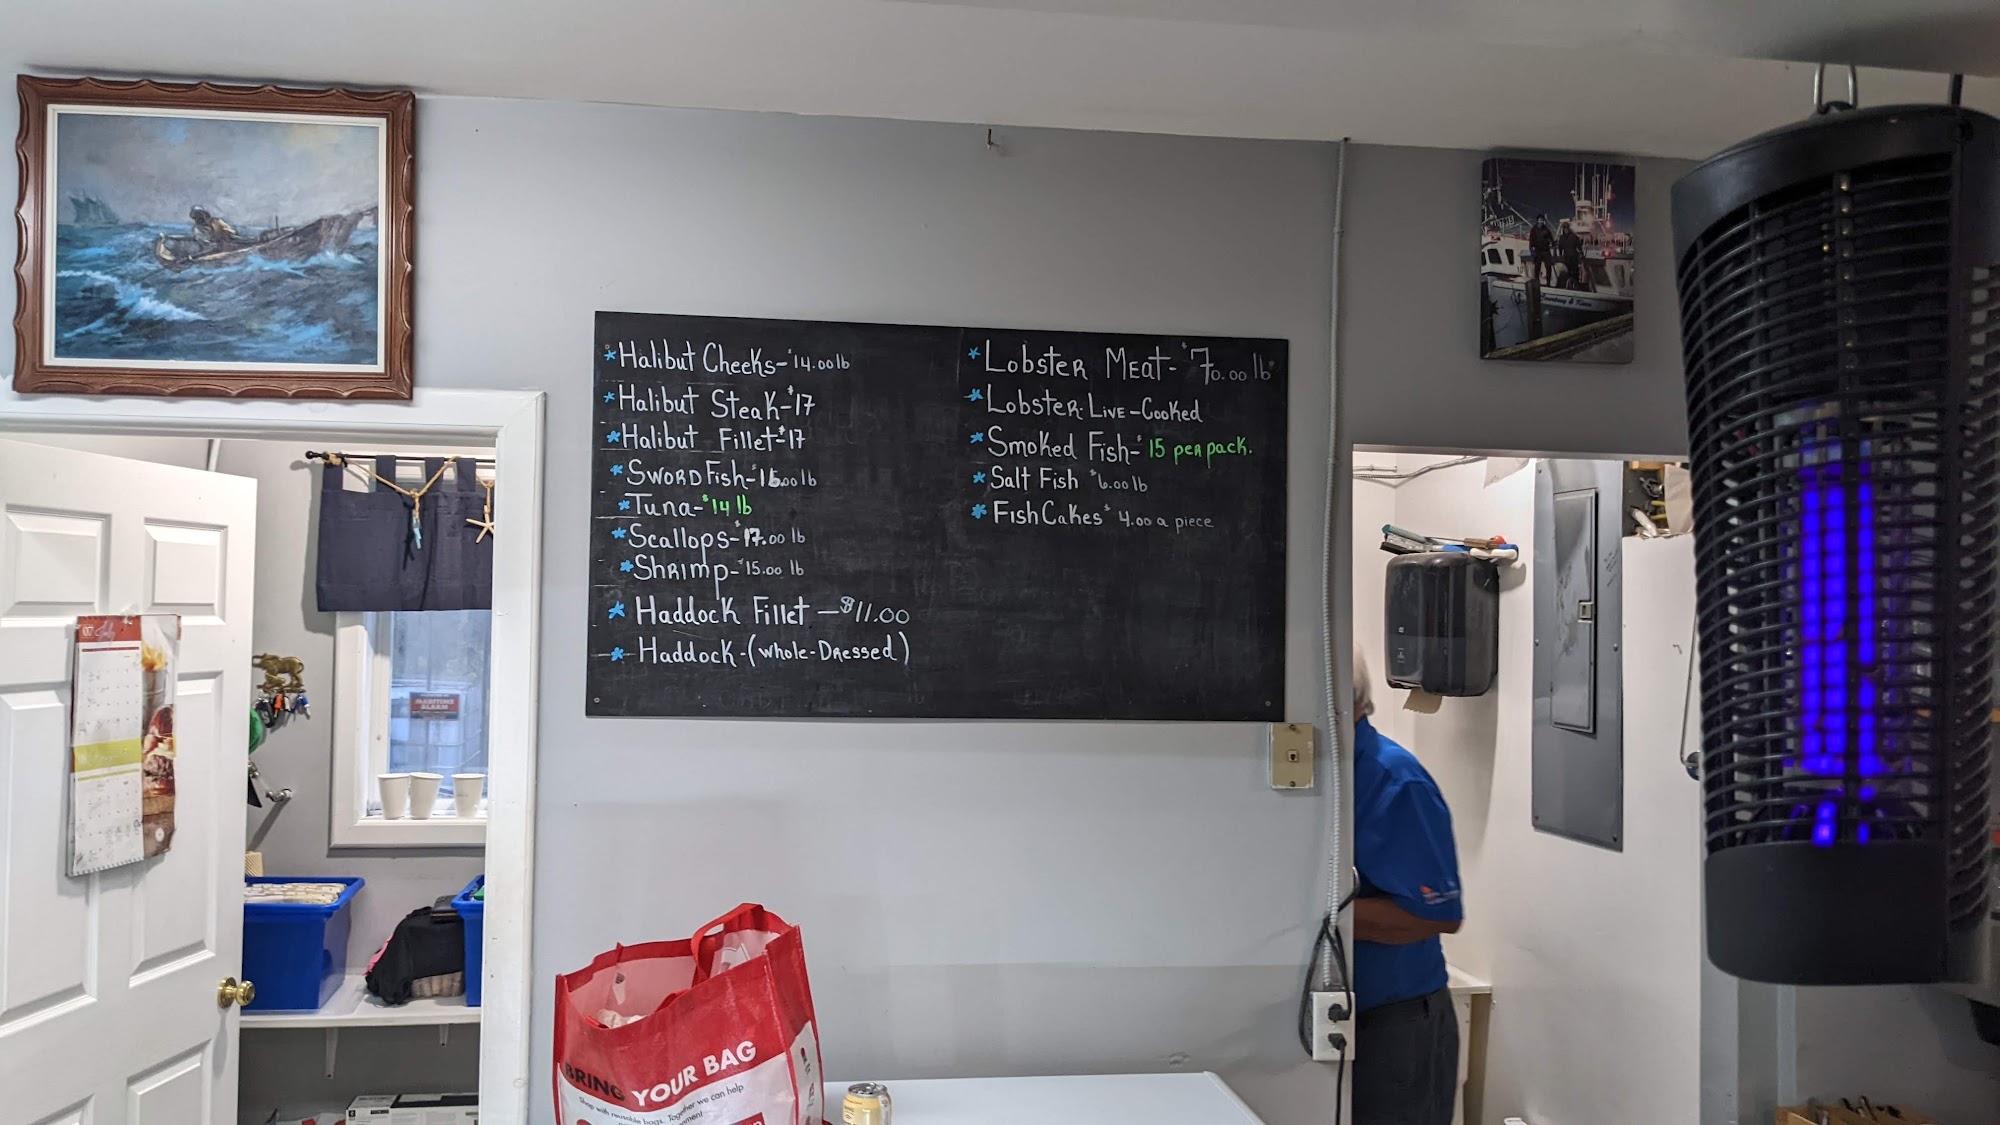 *Halibut Cheeks-$14.00lb
*Halibut Steak-$17
*Halibut Fillet-$17
*SwordFish-$16.00lb
*Tuna-$14 lb
*Scallops-$17.00 lb
*Shrimp-$15.00 lb
*Haddock Fillet-$11.00
*Haddock-(whole-Dressed)
*Lobster Meat-$70.00 lb
*Lobster-Live-Cooked
*Smoked Fish-$15 per pack.
*Salt Fish $6.00 lb
*FishCakes $4.00 a piece
07 July
MARITIME
ALARM
BRING YOUR BAG
Shop with reusable bags. Together we can help